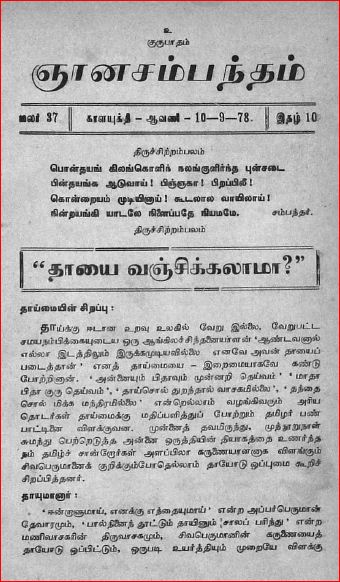 உ
குருபாதம்
ஞானசம்பந்தம்
மலர் 37 காளயுக்தி - ஆவணி - 10-9-78. இதழ் 10
திருச்சிற்றம்பலம்
பொன்தயங் கிலங்கொளிந் நலங்குளிர்ந்த புன்சடை
பின்தயங்க ஆடுவாய்! பிஞ்ஞகா! பிறப்பிலீ!
கொன்றையம் முடியினாய்! கூடலால வாயிலாய்!
நின்றயங்கி யாடலே நினைப்பதே நியமமே. சம்பந்தர்.
திருச்சிற்றம்பலம்
“தாயை வஞ்சிக்கலாமா?”
தாய்மையின் சிறப்பு :
தாய்க்கு ஈடான உறவு உலகில் வேறு இல்லை. வேறுபட்ட
சமயநம்பிக்கையுடைய ஒரு ஆங்கிலச்சிந்தனையாளன் 'ஆண்டவனால்
எல்லா இடத்திலும் இருக்கமுடியவில்லை எனவே அவன் தாயைப்
படைத்தான்' எனத் தாய்மையை – இறைமையாகவே கண்டு
போற்றினான். 'அன்னையும் பிதாவும் முன்னறி தெய்வம்' 'மாதா
பிதா குரு தெய்வம்', 'தாய்சொல் துறந்தால் வாசகமில்லை', 'தந்தை
சொல் மிக்க மந்திரமில்லை' என்றெல்லாம் வழங்கிவரும் அரிய
தொடர்கள் தாய்மைக்கு மதிப்பளித்துப் போற்றும் தமிழர் பண்
பாட்டினை விளக்குவன. முன்னைத் தவமிருந்து, முந்நூறுநாள்
சுமந்து பெற்றெடுத்த அன்னை ஒருத்தியின் தியாகத்தை உணர்ந்த
நம் தமிழ்ச் சான்றோர்கள் அளப்பிலா கருணையாளனாக விளங்கும்
சிவபெருமானைக் குறிக்கும்போதெல்லாம் தாயோடு ஒப்புமை கூறிச்
சிறப்பித்தனர்.
தாயுமானார் :
'ஈன்றாளுமாய், எனக்கு எந்தையுமாய்' என்ற அப்பர்பெருமான்
தேவாரமும், 'பால்நினைந் தூட்டும் தாயினும் சாலப் பரிந்து' என்ற
மணிவாசகரின் திருவாசகமும், சிவபெருமானின் கருணையைத்
தாயோடு ஒப்பிட்டும், ஒருபடி உயர்த்தியும் முறையே விளக்கு